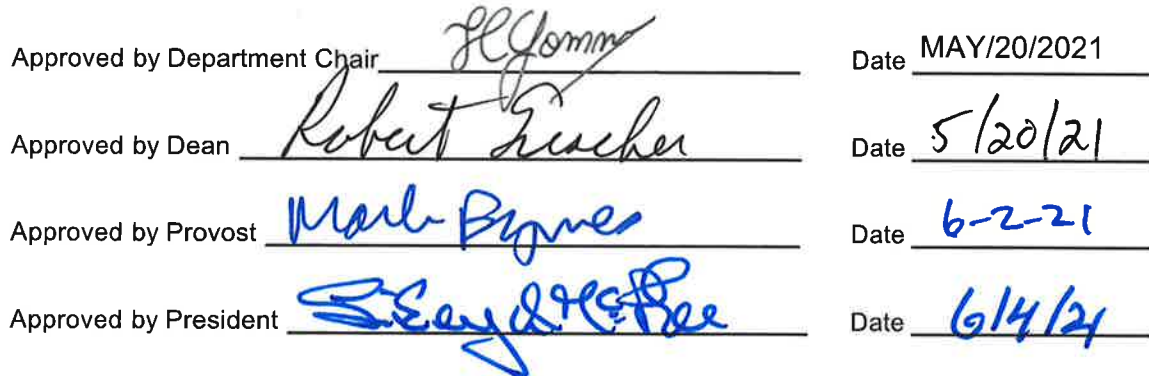 Approved by Department Chair Date MAY/20/2021
Approved by Dean Robert Date 5/20/21
Approved by Provost Mark Byrnes Date 6-2-21
Approved by President McPhee Date 6/4/21